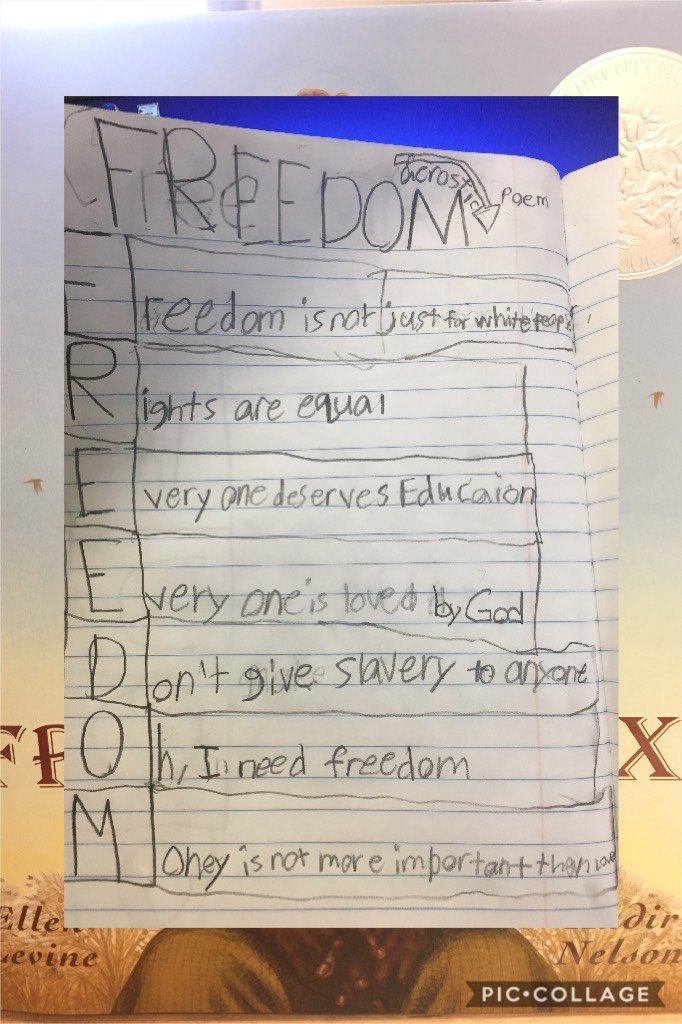 FREEDOM
acrostic
Poem
Freedom is not just for white people
Rights are equal
Every one deserves Educaion
Every one is loved by God
Don't give slavery to anyone
Oh, I need freedom
Money is not more important then love
FR X
Ellen Levine
Kadir Nelson
PIC•COLLAGE